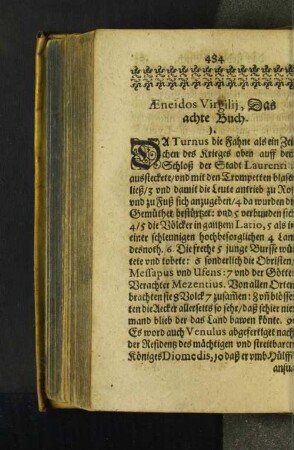 484
Æneidos Virgilij, Das
achte Buch.
1.
DA Turnus die Fahne als ein Zei
chen des Krieges oben auff dem
Schloß der Stadt Laurenti
aussteckete/vnd mit den Trompetten blasen
ließ/3 vnd damit die Leute antrieb zu Roß
vnd zu Fuß sich anzugeben/4 da wurden die
Gemüther bestürtzet: vnd 5 verbunden sich
4/5 die Völcker in gantzem Latio, 5 als in
einer schleunigen hochbesorglichen 4 Lan
desnoth. 6. Die freche 5 junge Bursse wü
tete vnd tobete: 6 sonderlich die Obristen/
Messapus vnd Ufens: 7 vnd der Götter
Verachter Mezentius. Von allen Orten
brachten sie 8 Volck 7 zusamen: 8 vñ blösse
ten die Aecker allerseits so sehr/daß schier nie
mand blieb der das Land bawen könte. 9
Es word auch Venulus abgefertiget nach
der Residentz des mächtigen vnd streitbaren
Königes Diomedis, 10 daß er vmb Hülffe
ansu